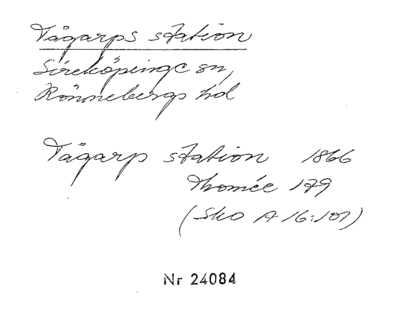 Tågarps station
Sireköpinge sn,
Rönnebergs hd
Tågarp station 1866
Thomée 179
(Sko A 16:101)
Nr 24084